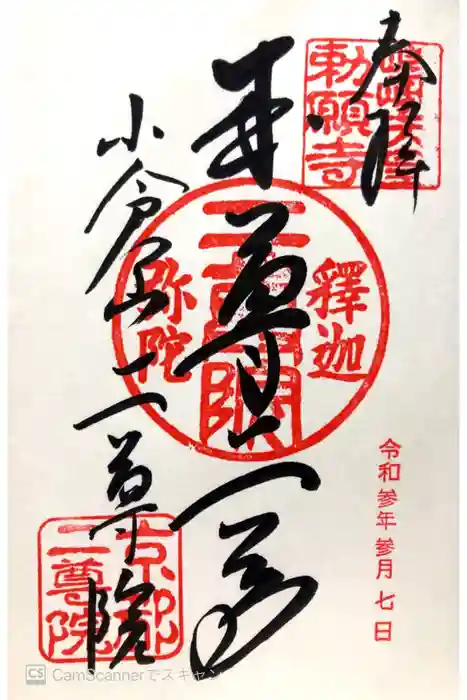 奉拝
嵯峨天皇
勅願寺
本尊二尊
釋迦
二尊院
弥陀
小倉山二尊院
京都
二尊院
令和参年参月七日
CS CamScannerでスキャン